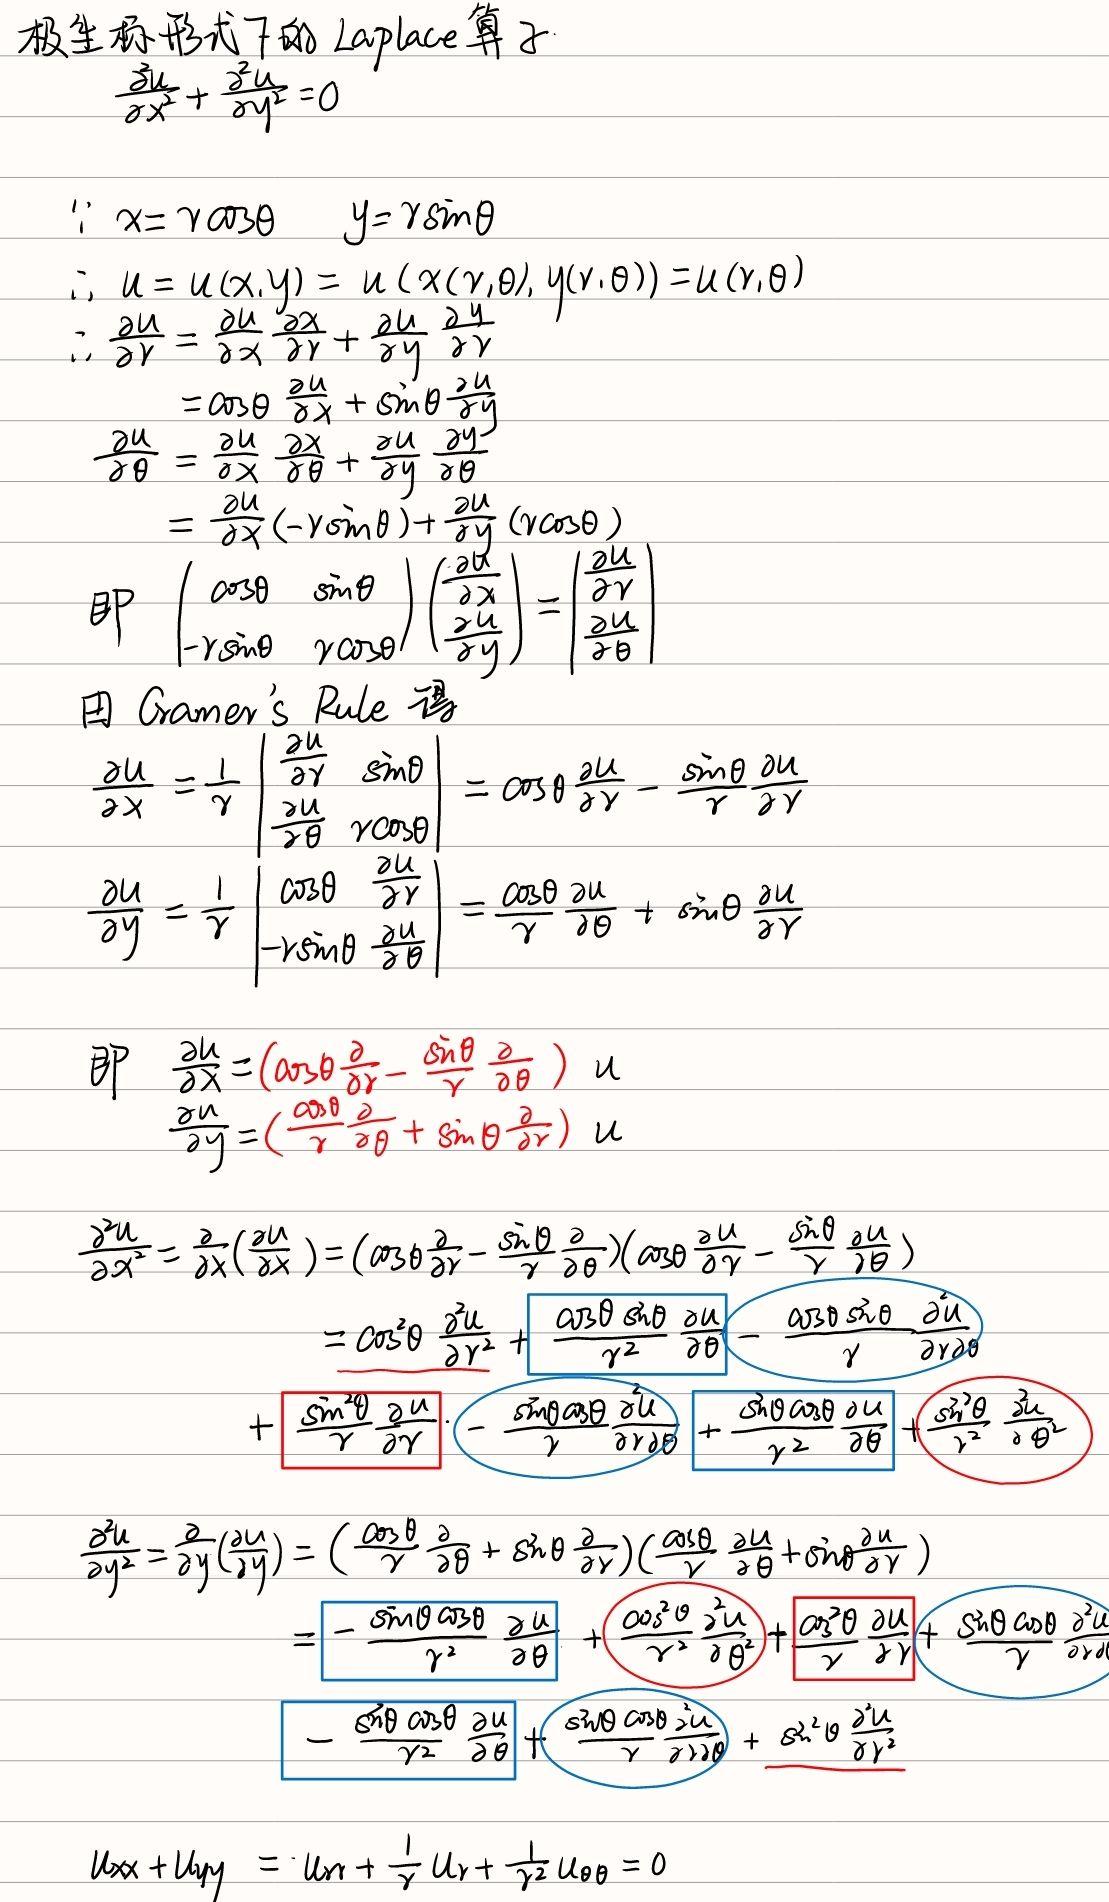 极坐标形式下的 Laplace 算子.
∂²u/∂x² + ∂²u/∂y² = 0
∵ x = rcosθ y = rsinθ
∴ u = u(x,y) = u(x(r,θ), y(r,θ)) = u(r,θ)
∴ ∂u/∂r = ∂u/∂x ∂x/∂r + ∂u/∂y ∂y/∂r
= cosθ ∂u/∂x + sinθ ∂u/∂y
∂u/∂θ = ∂u/∂x ∂x/∂θ + ∂u/∂y ∂y/∂θ
= ∂u/∂x (-rsinθ) + ∂u/∂y (rcosθ)
即 (cosθ sinθ; -rsinθ rcosθ) (∂u/∂x; ∂u/∂y) = |∂u/∂r; ∂u/∂θ|
由 Cramer's Rule 得
∂u/∂x = 1/r |∂u/∂r sinθ; ∂u/∂θ rcosθ| = cosθ ∂u/∂r - sinθ/r ∂u/∂r
∂u/∂y = 1/r |cosθ ∂u/∂r; -rsinθ ∂u/∂θ| = cosθ/r ∂u/∂θ + sinθ ∂u/∂r
即 ∂u/∂x = (cosθ ∂/∂r - sinθ/r ∂/∂θ) u
∂u/∂y = (cosθ/r ∂/∂θ + sinθ ∂/∂r) u
∂²u/∂x² = ∂/∂x (∂u/∂x) = (cosθ ∂/∂r - sinθ/r ∂/∂θ)(cosθ ∂u/∂r - sinθ/r ∂u/∂θ)
= cos²θ ∂²u/∂r² + cosθ sinθ/r² ∂u/∂θ - cosθ sinθ/r ∂²u/∂r∂θ
+ sin²θ/r ∂u/∂r - sinθ cosθ/r ∂²u/∂r∂θ + sinθ cosθ/r² ∂u/∂θ + sin²θ/r² ∂²u/∂θ²
∂²u/∂y² = ∂/∂y (∂u/∂y) = (cosθ/r ∂/∂θ + sinθ ∂/∂r)(cosθ/r ∂u/∂θ + sinθ ∂u/∂r)
= - sinθ cosθ/r² ∂u/∂θ + cos²θ/r² ∂²u/∂θ² + cos²θ/r ∂u/∂r + sinθ cosθ/r ∂²u/∂r∂θ
- sinθ cosθ/r² ∂u/∂θ + sinθ cosθ/r ∂²u/∂r∂θ + sin²θ ∂²u/∂r²
uxx + uyy = urr + 1/r ur + 1/r² uθθ = 0